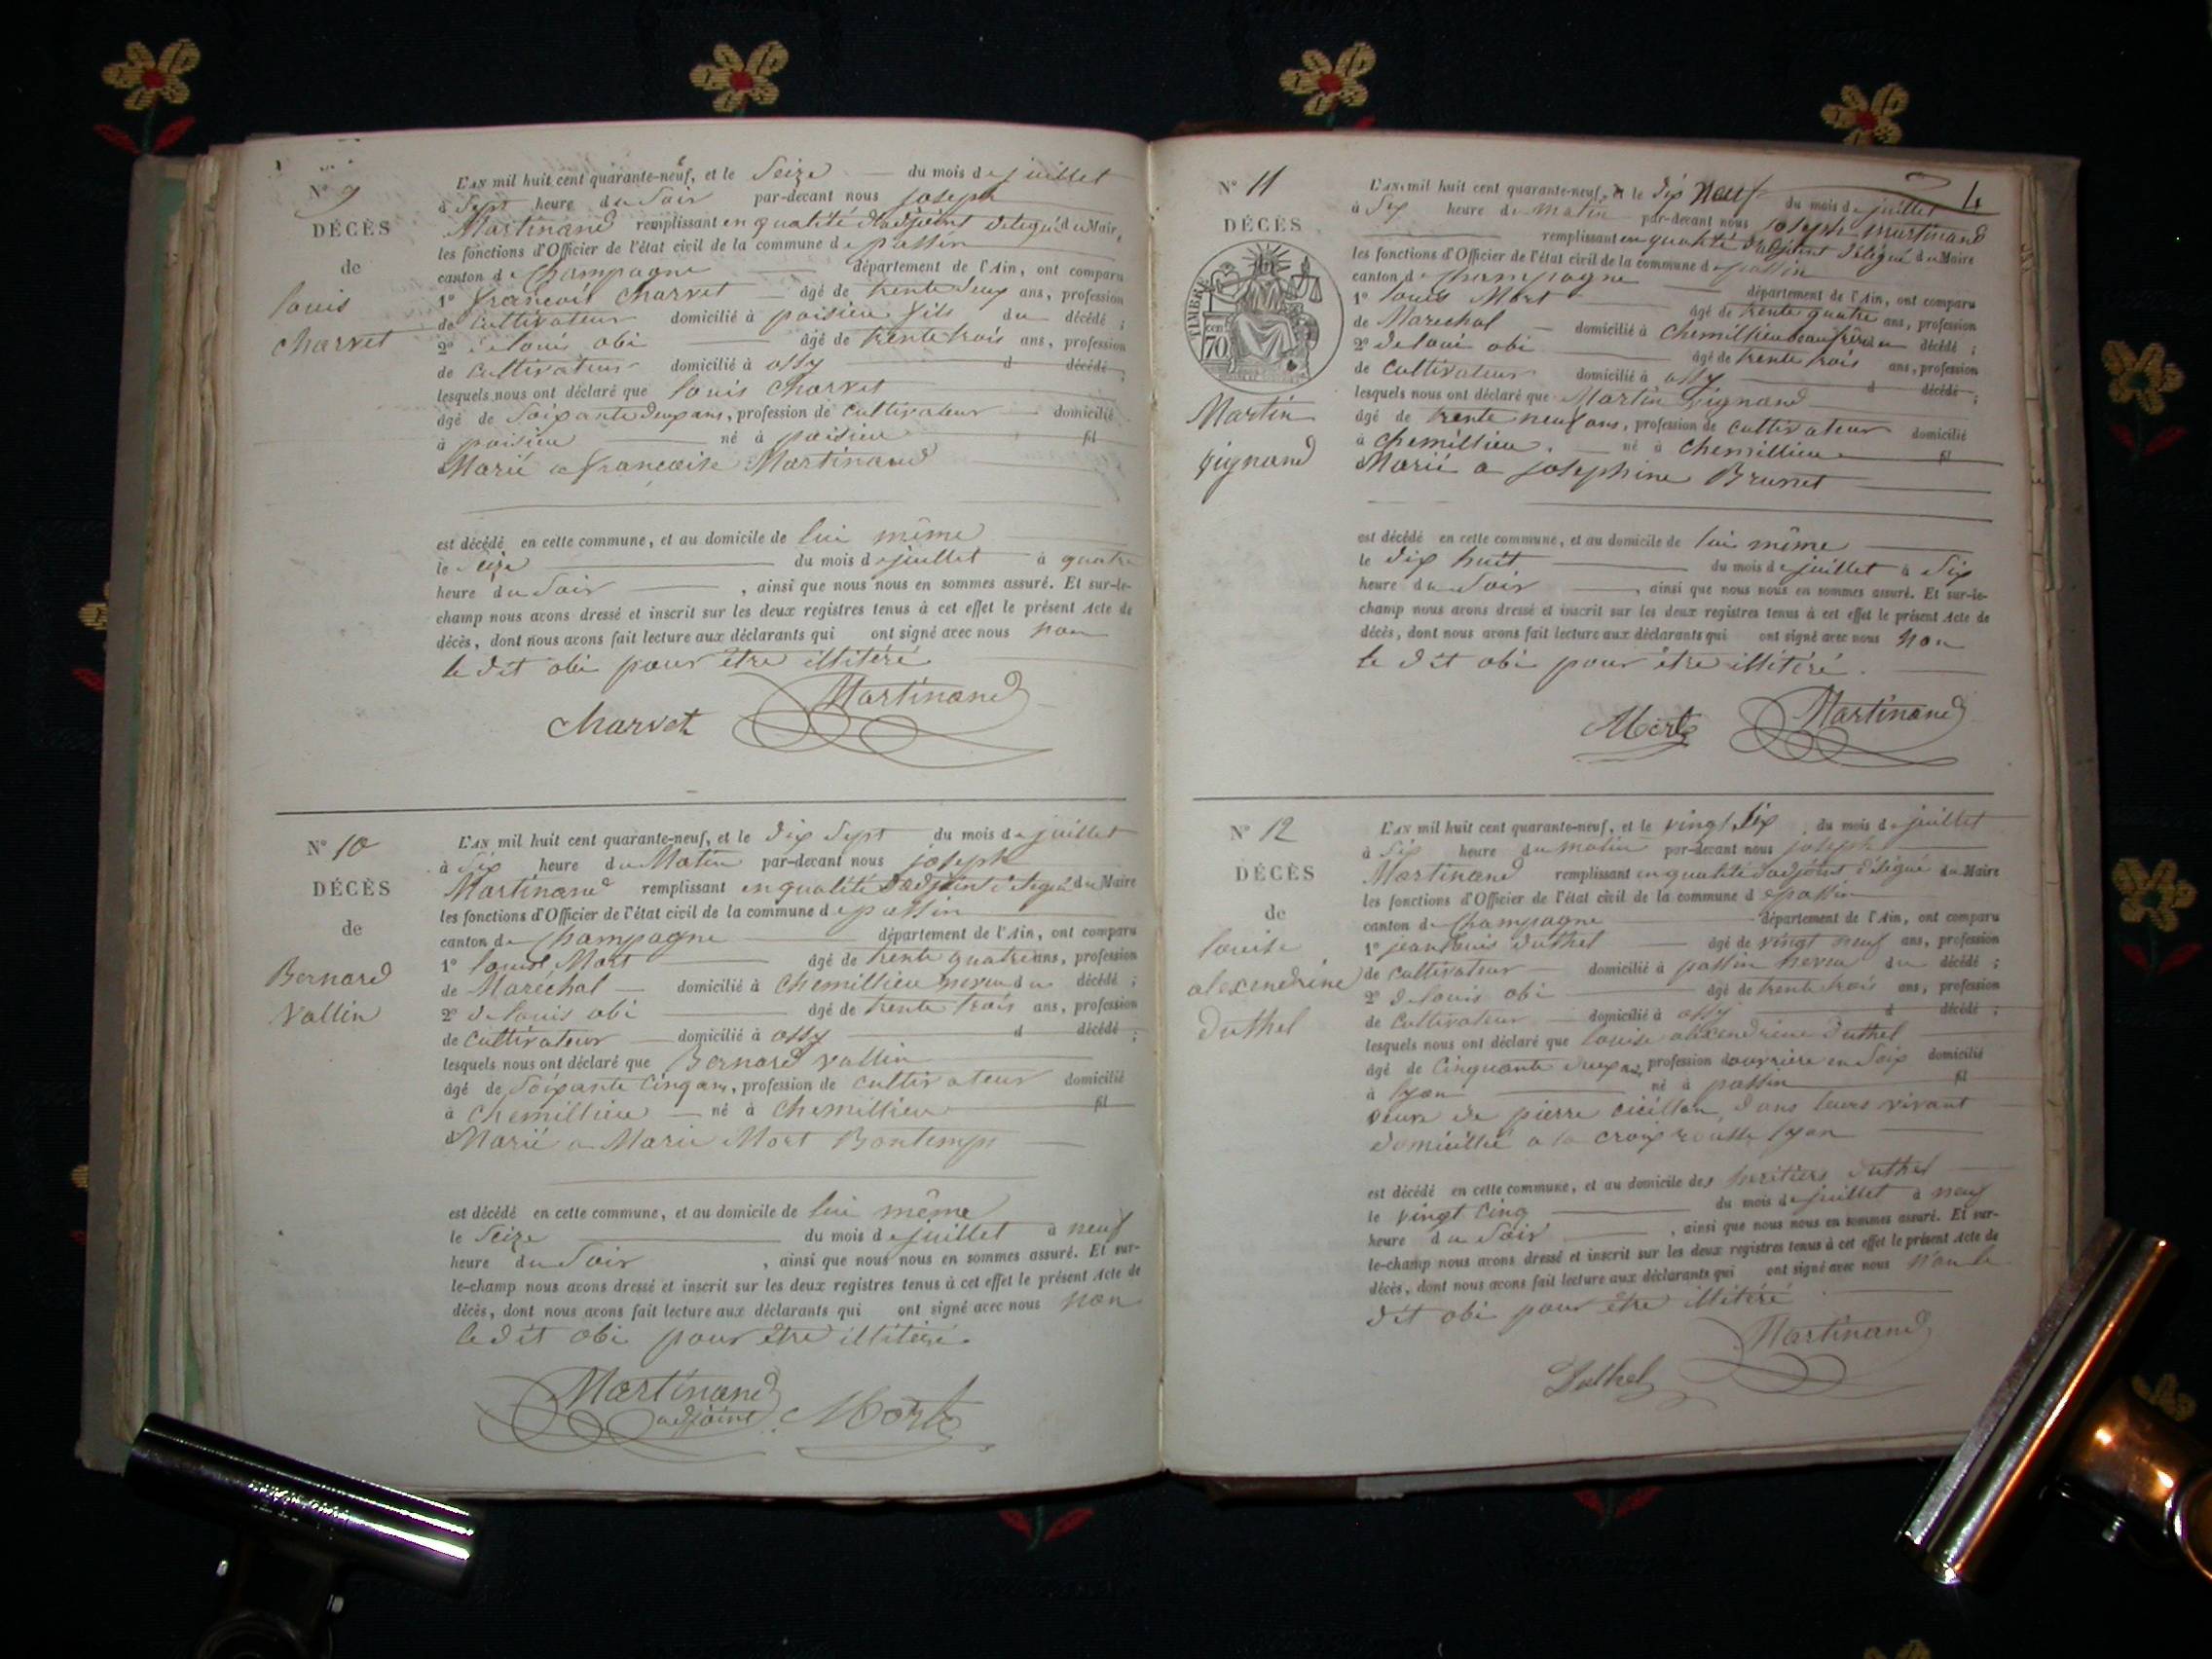 N° 9
DÉCÈS
de
louis
Charvet
L'AN mil huit cent quarante-neuf, et le Seize du mois de juillet
à Sept heure du Soir par-devant nous joseph
Martinand remplissant en qualité d'adjoint délégué du Maire,
les fonctions d'Officier de l'état civil de la commune de passin
canton de Champagne département de l'Ain, ont comparu
1° françois Charvet âgé de trente deux ans, profession
de Cultivateur domicilié à poisieu fils du décédé ;
2° de louis obi âgé de trente trois ans, profession
de Cultivateur domicilié à ossy d décédé ;
lesquels nous ont déclaré que louis Charvet
âgé de Soixante deux ans, profession de Cultivateur domicilié
à poisieu né à poisieu fil
Marié a françoise Martinand
est décédé en cette commune, et au domicile de lui même
le Seize du mois de juillet à quatre
heure du Soir , ainsi que nous nous en sommes assuré. Et sur-le-
champ nous avons dressé et inscrit sur les deux registres tenus à cet effet le présent Acte de
décès, dont nous avons fait lecture aux déclarants qui ont signé avec nous non
le dit obi pour être illitéré
Charvet Martinand
N° 10
DÉCÈS
de
Bernard
Vallin
L'AN mil huit cent quarante-neuf, et le dix Sept du mois de juillet
à Six heure du Matin par-devant nous joseph
Martinand remplissant en qualité d'adjoint délégué du Maire
les fonctions d'Officier de l'état civil de la commune de passin
canton de Champagne département de l'Ain, ont comparu
1° louis Mort âgé de trente quatre ans, profession
de Marechal domicilié à Chemillieu neveu du décédé ;
2° de louis obi âgé de trente trois ans, profession
de Cultivateur domicilié à ossy d décédé ;
lesquels nous ont déclaré que Bernard Vallin
âgé de Soixante Cinq ans, profession de Cultivateur domicilié
à Chemillieu né à Chemillieu fil
Marié a Marie Mort Bontemps
est décédé en cette commune, et au domicile de lui même
le Seize du mois de juillet à neuf
heure du Soir , ainsi que nous nous en sommes assuré. Et sur-
le-champ nous avons dressé et inscrit sur les deux registres tenus à cet effet le présent Acte de
décès, dont nous avons fait lecture aux déclarants qui ont signé avec nous non
le dit obi pour être illitéré.
Martinand
adjoint Mort
4
N° 11
DÉCÈS
TIMBRE
70
Martin
gignand
L'AN mil huit cent quarante-neuf, et le dix neuf du mois de juillet
à Six heure du matin par-devant nous joseph Martinand
remplissant en qualité d'adjoint délégué du Maire
les fonctions d'Officier de l'état civil de la commune de passin
canton de Champagne département de l'Ain, ont comparu
1° louis Mort âgé de trente quatre ans, profession
de Marechal domicilié à Chemillieu beau frère du décédé ;
2° de louis obi âgé de trente trois ans, profession
de Cultivateur domicilié à ossy d décédé ;
lesquels nous ont déclaré que Martin gignand
âgé de trente neuf ans, profession de Cultivateur domicilié
à Chemillieu. né à Chemillieu fil
Marié a josephine Brunet
est décédé en cette commune, et au domicile de lui même
le dix huit du mois de juillet à Six
heure du Soir , ainsi que nous nous en sommes assuré. Et sur-le-
champ nous avons dressé et inscrit sur les deux registres tenus à cet effet le présent Acte de
décès, dont nous avons fait lecture aux déclarants qui ont signé avec nous non
le dit obi pour être illitéré.
Mort Martinand
N° 12
DÉCÈS
de
louise
alexendrine
duthel
L'AN mil huit cent quarante-neuf, et le vingt Six du mois de juillet
à Six heure du matin par-devant nous joseph
Martinand remplissant en qualité d'adjoint délégué du Maire
les fonctions d'Officier de l'état civil de la commune de passin
canton de Champagne département de l'Ain, ont comparu
1° jean louis duthel âgé de vingt neuf ans, profession
de Cultivateur domicilié à passin neveu du décédé ;
2° de louis obi âgé de trente trois ans, profession
de Cultivateur domicilié à ossy d décédé ;
lesquels nous ont déclaré que louise alexendrine duthel
âgé de Cinquante deux ans, profession d'ouvrière en Soix domicilié
à lyon né à passin fil
veuve de pierre dans leurs vivant
domicillié a la croix rousse lyon
est décédé en cette commune, et au domicile des heritiers duthel
le vingt Cinq du mois de juillet à neuf
heure du Soir , ainsi que nous nous en sommes assuré. Et sur-
le-champ nous avons dressé et inscrit sur les deux registres tenus à cet effet le présent Acte de
décès, dont nous avons fait lecture aux déclarants qui ont signé avec nous non le
dit obi pour être illitéré
Duthel Martinand